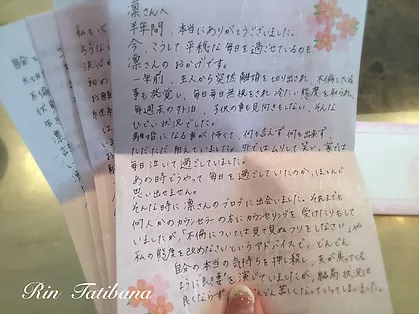 凛さんへ
半年間、本当にありがとうございました。
今、こうして平穏な毎日を過ごせているのも
凛さんのおかげです。
一年前、主人から突然離婚を切り出され、不倫している
事も発覚し、毎日毎日無視され冷たい態度を取られ、
毎週末の外泊、子供の事も見向きもしない、そんな
ひどい状況でした。
離婚になる事が怖くて、何も言えず何も出来ず、
ただただ耐えていました。外ではムリして笑い、家では
毎日泣いて過ごしていました。
あの時どうやって毎日を過ごしていたのか、ほとんど
思い出せません。
そんな時に凛さんのブログに出会いました。それまでも
何人かのカウンセラーの方にカウンセリングを受けたりもして
いましたが、「不倫については見て見ぬフリをしなさい」や
私の態度を改めなさいというアドバイスで、どんどん
自分の本当の気持ちを押し殺し、夫が戻ってくる
ように良き妻を演じていましたが、結局状況は
良くならず どんどん苦しくなっていってしまいました。
Rin Tatibana